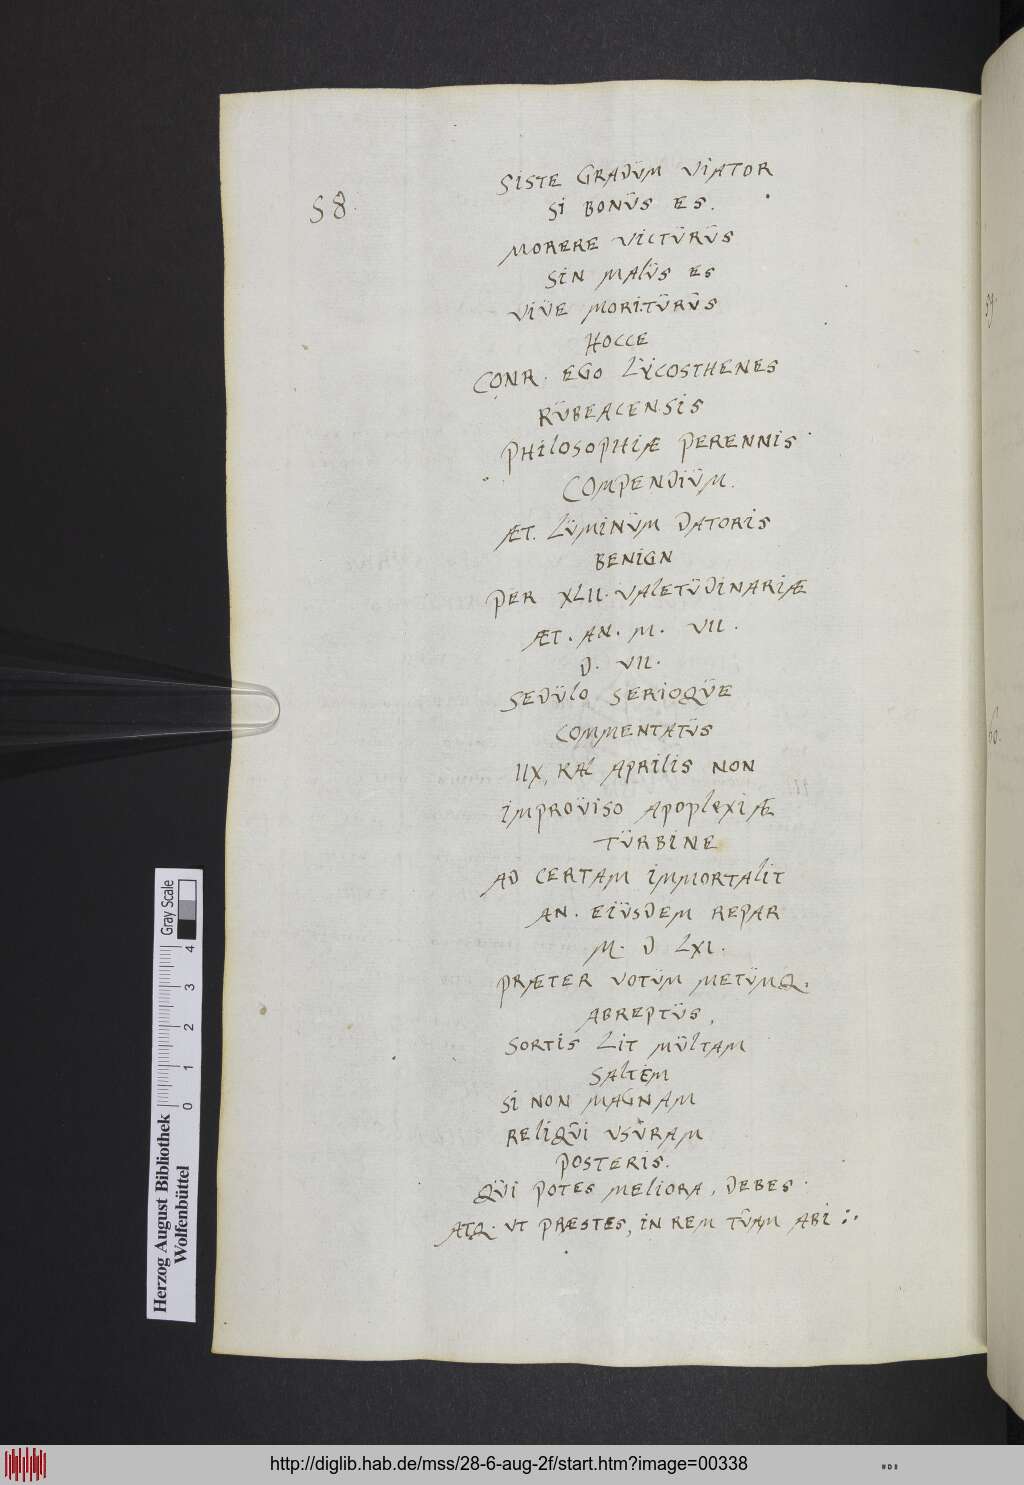 58.
SISTE GRADŪM VIATOR
SI BONŪS ES.
MORERE VICTŪRŪS
SIN MALŪS ES
VIŪE MORITŪRŪS
HOCCE
CONR. EGO LYCOSTHENES
RŪBEACENSIS
PHILOSOPHIÆ PERENNIS
COMPENDIŪM.
ÆT. LŪMINŪM DATORIS
BENIGN
PER XLII. VALETŪDINARIÆ
ÆT. AN. M. VII.
D. VII.
SEDŪLO SERIOQŪE
COMMENTATŪS
IIX, KAL APRILIS NON
IMPROŪISO APOPLEXIÆ
TŪRBINE
AD CERTAM IMMORTALIT
AN. EIŪSDEM REPAR
M. D LXI.
PRÆTER VOTŪM METŪMQ.
ABREPTŪS,
SORTIS LIT MŪLTAM
SALTEM
SI NON MAGNAM
RELIQŪI USŪRAM
POSTERIS.
QŪI POTES MELIORA, DEBES.
ATQ. UT PRÆSTES, IN REM TŪAM ABI
59.
60.
Herzog August Bibliothek
Wolfenbüttel
0 1 2 3 4
Gray Scale
http://diglib.hab.de/mss/28-6-aug-2f/start.htm?image=00338